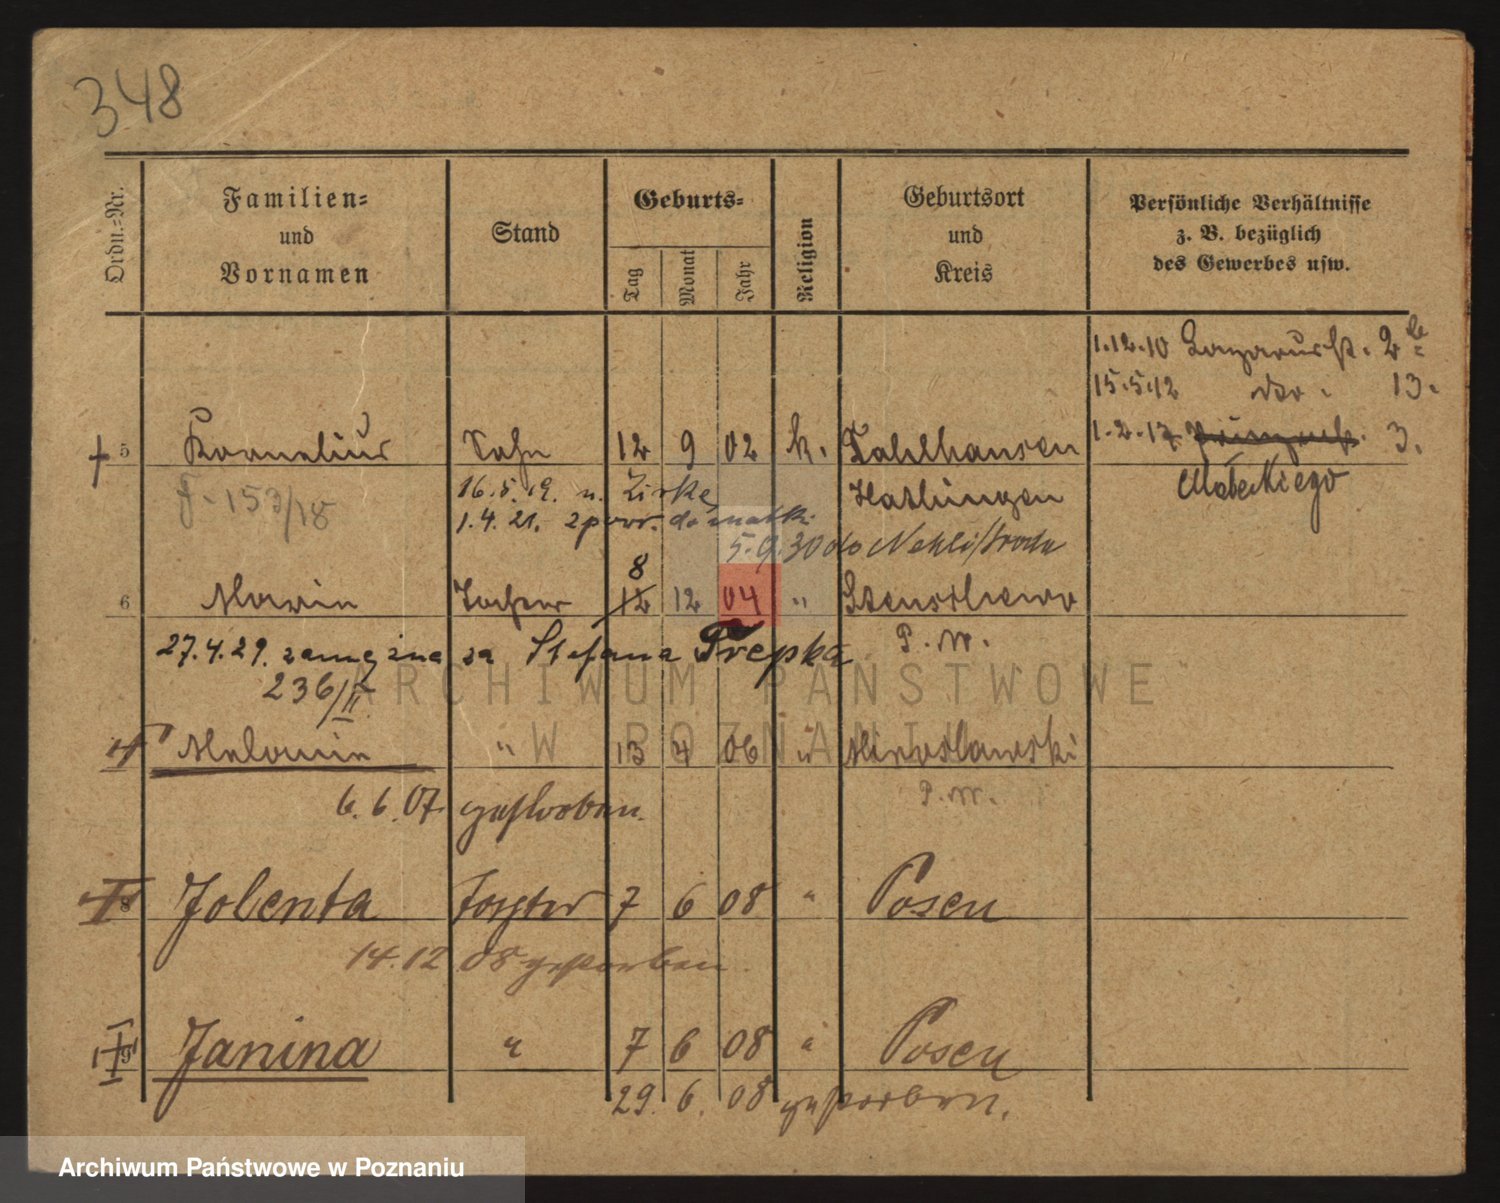 348
Ordn.-Nr. Familien- und Vornamen Stand Geburts- Tag Monat Jahr Religion Geburtsort und Kreis Persönliche Verhältnisse z. B. bezüglich des Gewerbes usw.
1.12.10 Lazarusstr. 2
15.5.12 do. 13.
1.2.17 3.
5 Kornelius Sohn 12 9 02 k. Dahlhausen
Małeckiego
F-153/18 16.5.19. n. Zirke Hattingen
1.4.21. z powr. do matki
5.9.30 do Nekli/Środa
8
6 Maria Tochter 12 12 04 " Stenschewo
P.W.
27.4.29. zamężna za Stefana Trepka
236/II
ARCHIWUM PAŃSTWOWE
W POZNANIU
Melanie " 13 4 06 " Miroslawski
P.W.
6.6.07. gestorben.
8 Jolenta Tochter 7 6 08 " Posen
14.12 08 gestorben
9 Janina " 7 6 08 " Posen
29. 6. 08 gestorben.
Archiwum Państwowe w Poznaniu